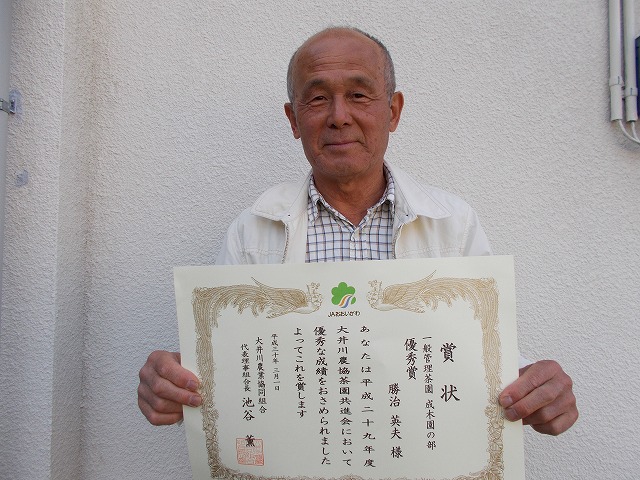 JAおおいがわ
賞状
一般管理茶園 成木園の部
優秀賞
勝治 英夫 様
あなたは平成二十九年度
大井川農協茶園共進会において
優秀な成績をおさめられました
よってこれを賞します
平成三十年 三月一日
大井川農業協同組合
代表理事組合長 池谷 薫